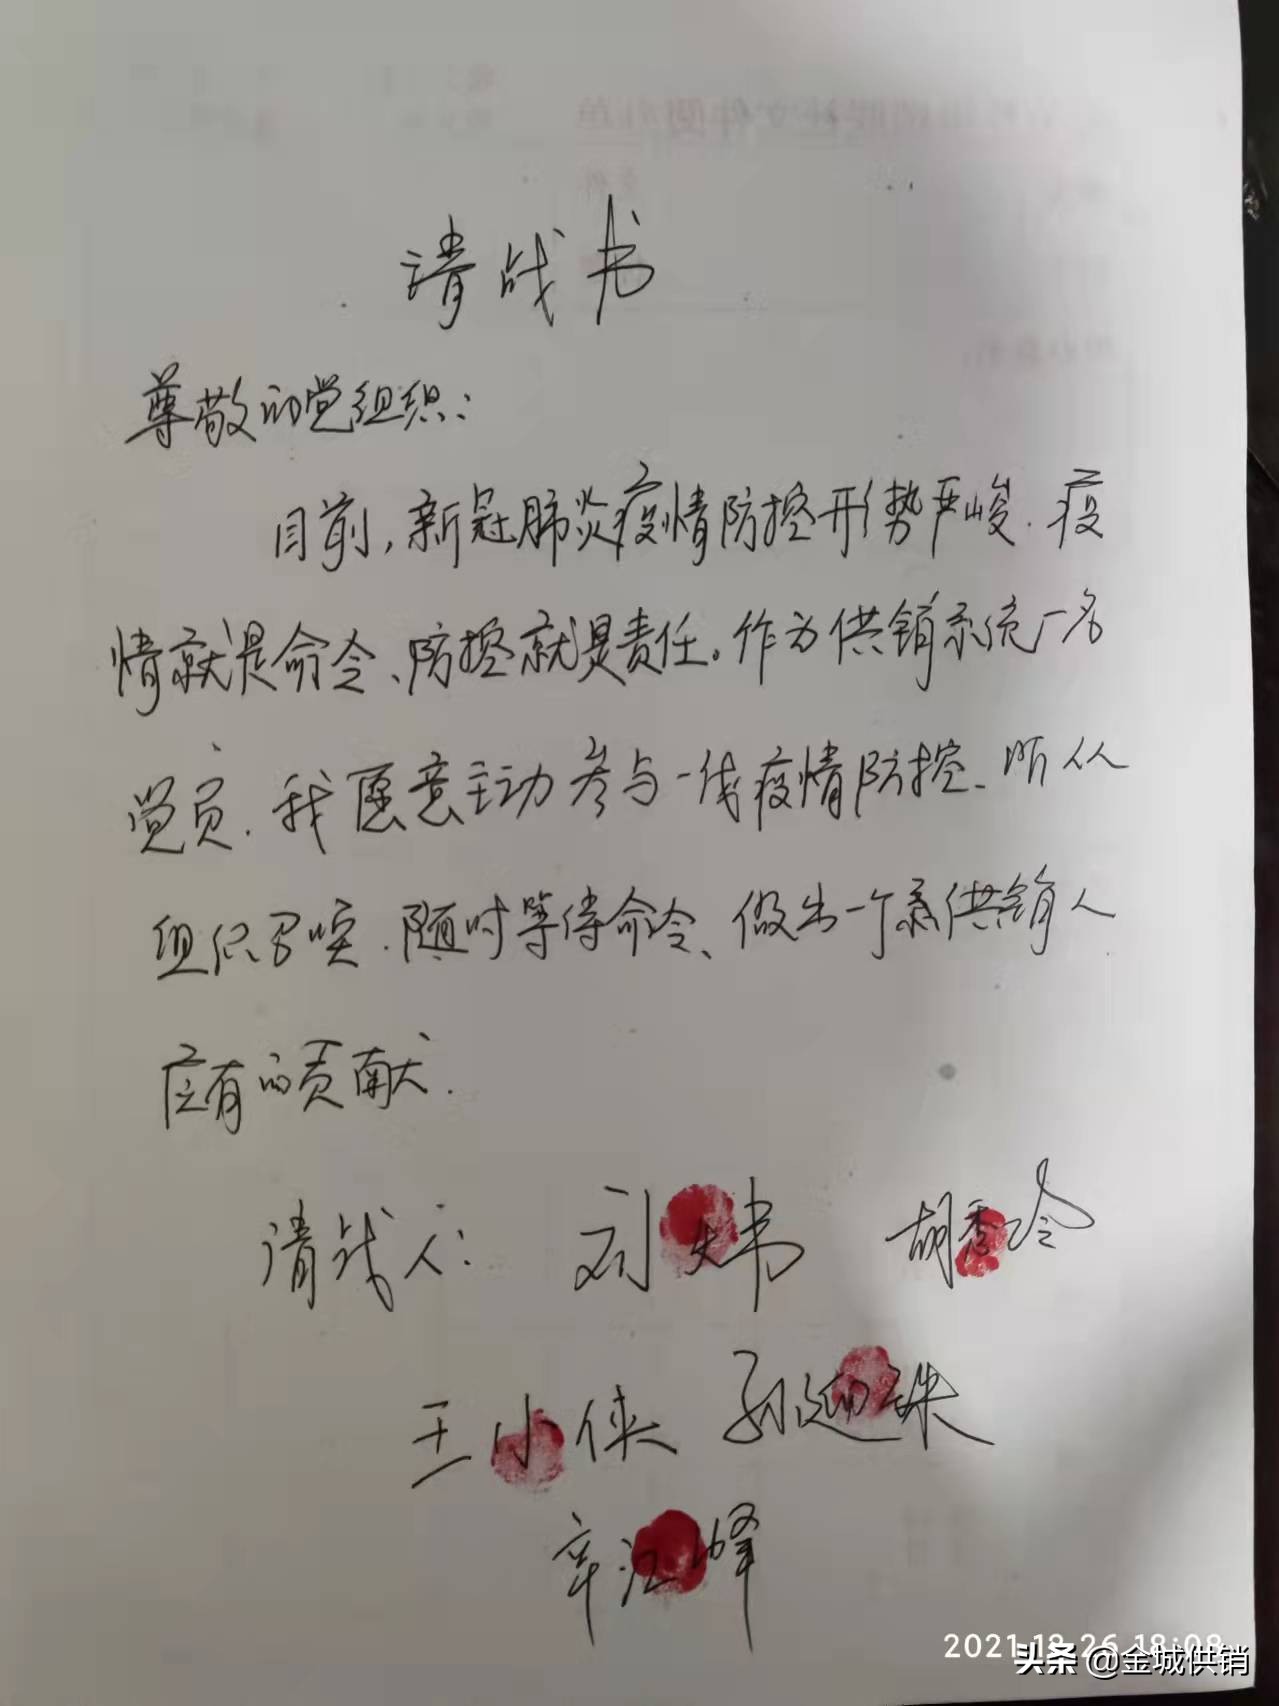 请战书
尊敬的党组织：
目前，新冠肺炎疫情防控形势严峻．疫
情就是命令、防控就是责任。作为供销系统一名
党员．我愿意主动参与一线疫情防控、听从
组织召唤．随时等待命令、做出一个系供销人
应有的贡献．
请战人：刘炜 胡秀玲
王小侠 孙迎珠
辛江峰
18:08
头条 @金城供销